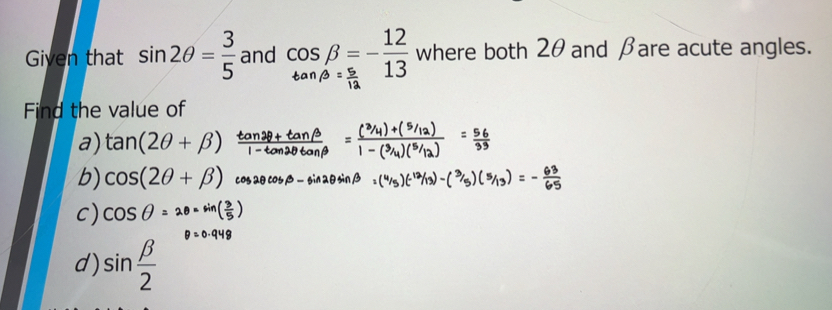 Given that sin 2θ = 3/5 and cos β = −12/13 where both 2θ and β are acute angles.
tan β = 5/12
Find the value of
a) tan(2θ + β) (tan2θ + tanβ)/(1 − tan2θ tanβ) = ((3/4) + (5/12))/(1 − (3/4)(5/12)) = 56/33
b) cos(2θ + β) cos2θ cosβ − sin2θ sinβ = (4/5)(−12/13) − (3/5)(5/13) = − 63/65
c) cos θ = 2θ = sin(3/5)
θ = 0.948
d) sin β/2